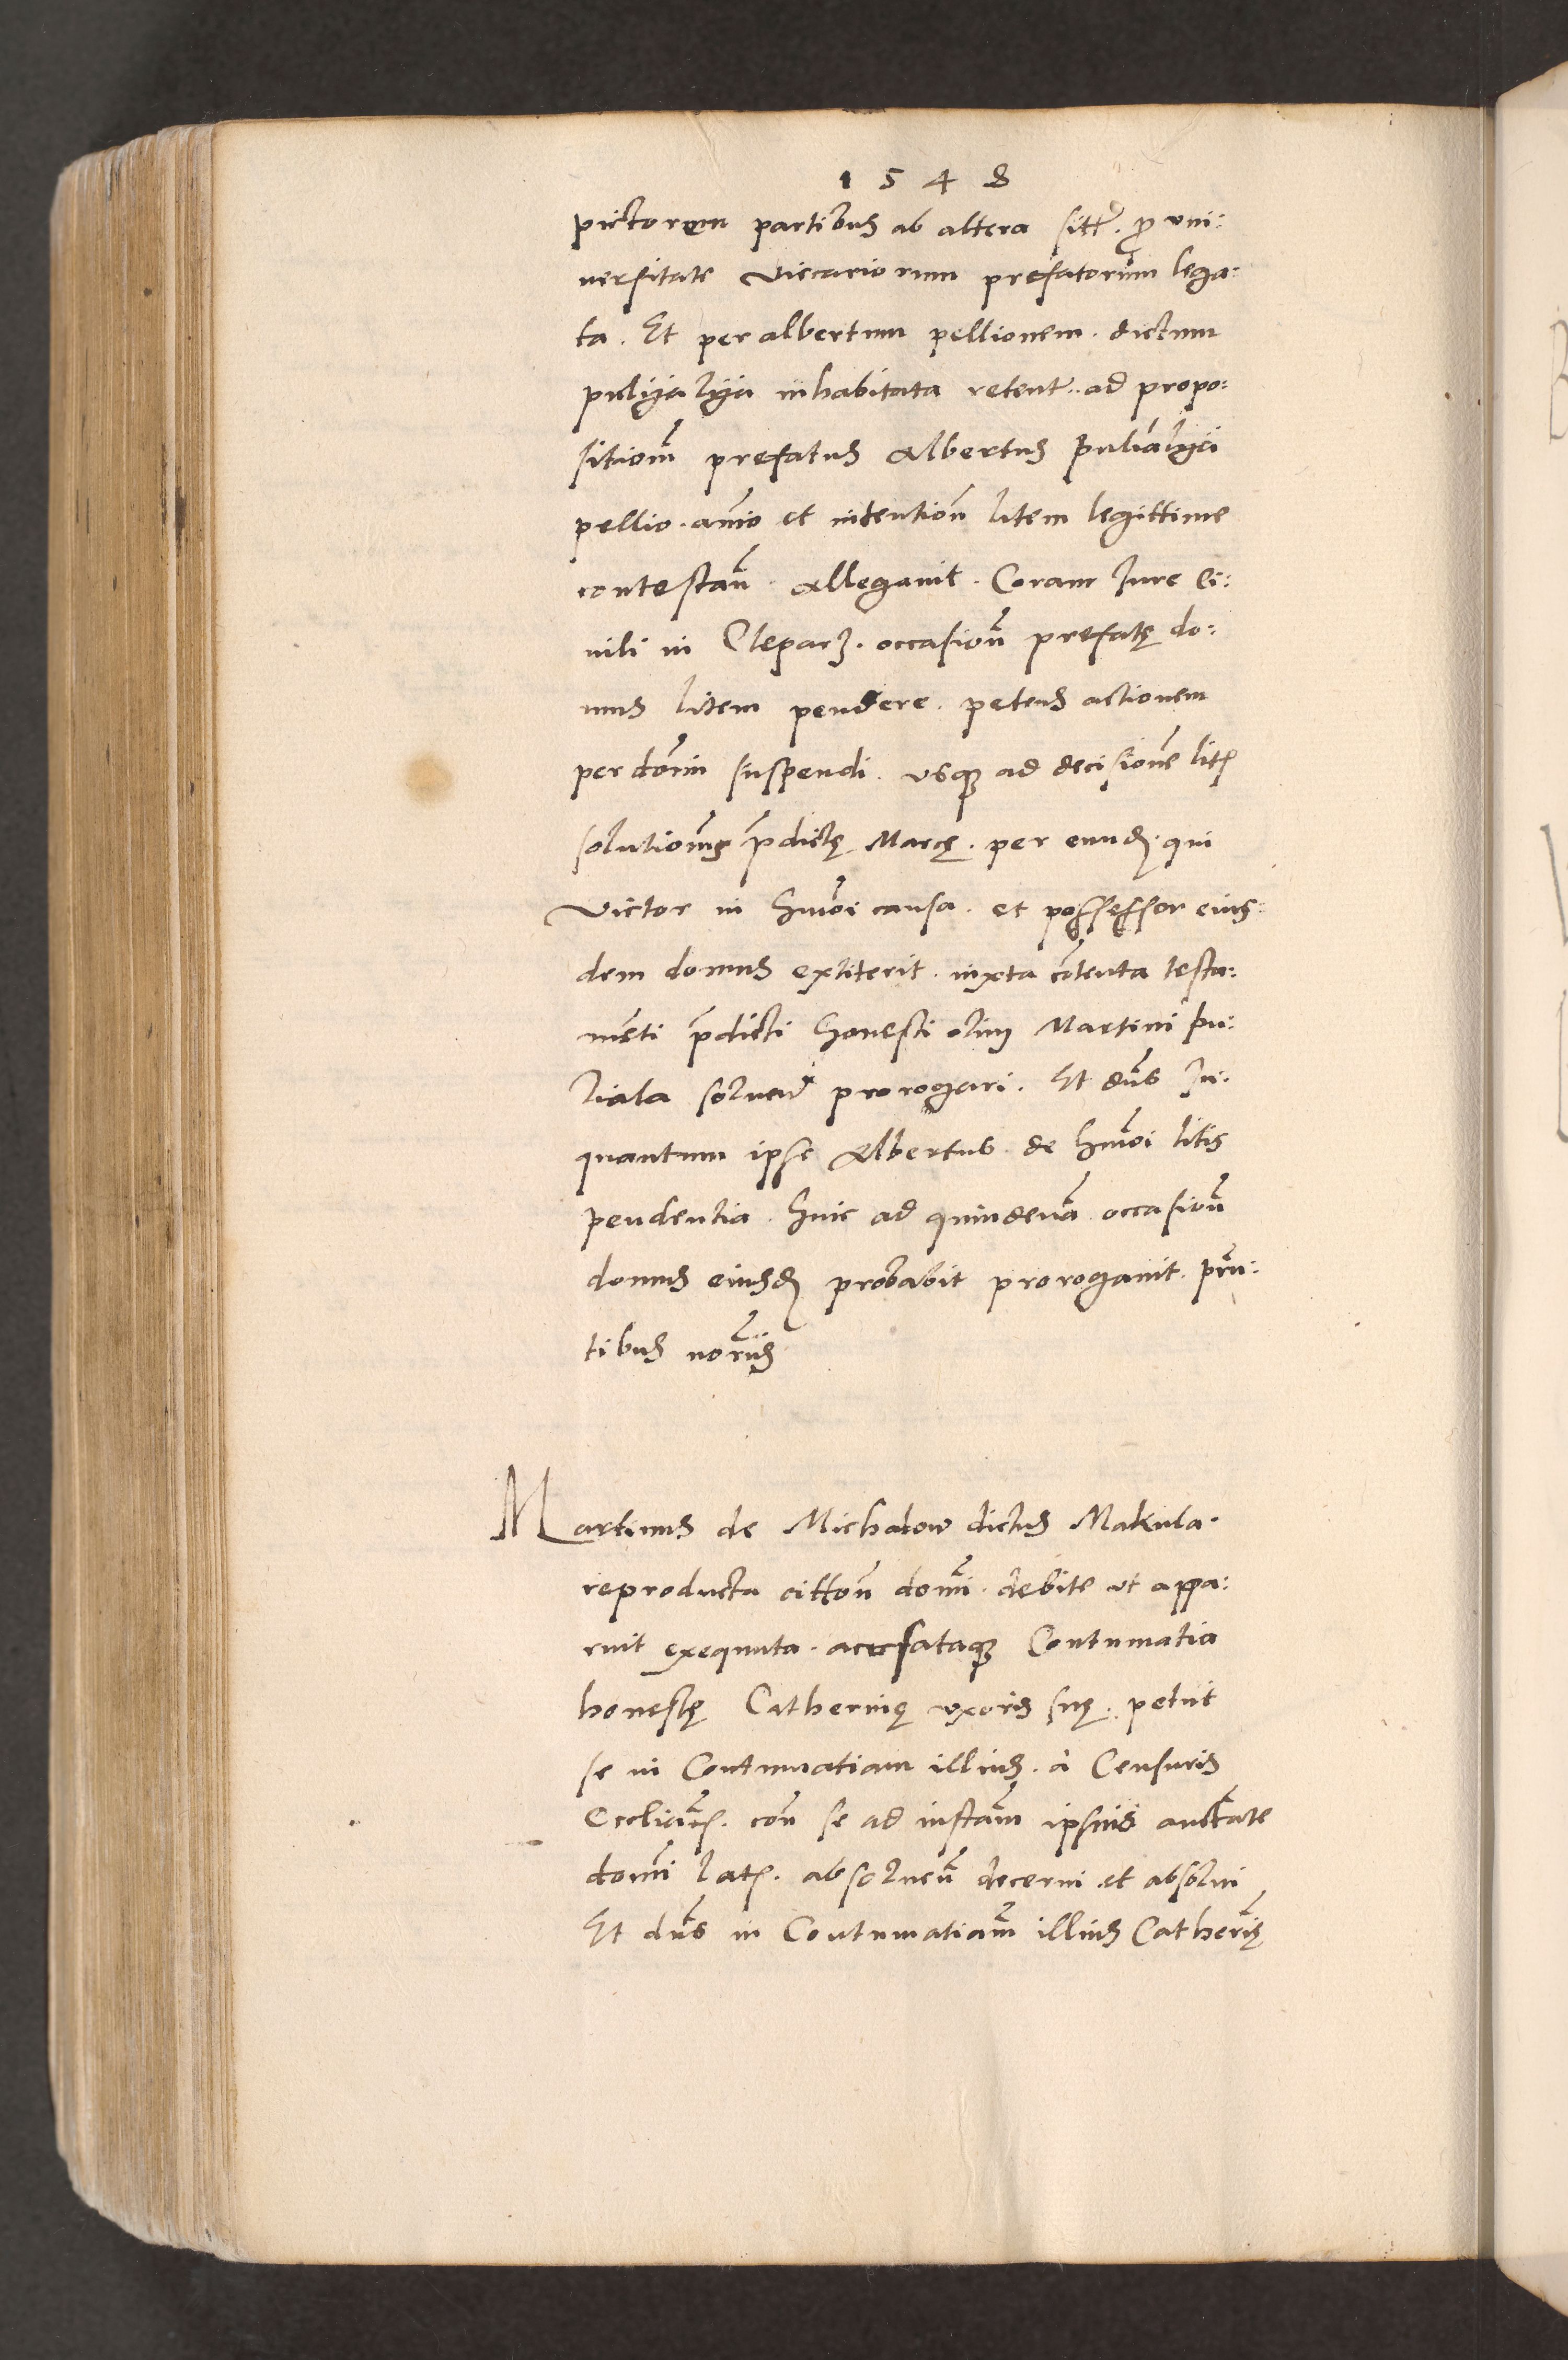 1548
pictorem partibus ab altera sitt̃. ꝓ uni:
uersitate Viccariorum prefatorum lega:
ta. Et per albertum pellionem. dictum
pulyalya inhabitata retent̃.. ad propo:
sitiom̃ prefatus Albertus pulialya
pellio. anĩo et intention̄ litem legittime
contestan̄. Allegauit. Coram Jure Ci:
uili in Cleparz. occasion̄ prefatę do:
mus litem pendere. petens actionem
per dom̄in suspendi. usqꝫ ad decisionē litis
solutiom̄qꝫ p̄dictę Marcę. per eund. qui
Victor in hm̄oi causa. et possessor eius:
dem domus extiterit. iuxta cōtenta testa:
mēti p̄dicti honesti olim Martini pu:
liala soluend prorogari. Et dn̄s In:
quantum ipse Albertus de hm̄oi litis
pendentia. huic ad quindenā occasion̄
domus eiusd probabit prorogauit. pn̄:
tibus nor̄iis
Martinus de Michalow dictus Makula.
reproducta citton̄ domi. debite ut appa:
ruit exequuta. accusataqꝫ Contumatia
honestę Catherinę uxoris suę. petiit
se in Contumatiam illius. à Censuris
Eccliãs. con̄ se ad instam̄ ipsius auctate
domi latis. absoluen̄ decerni et absolui
Et dn̄s in Contumatiam̄ illius Catherīę